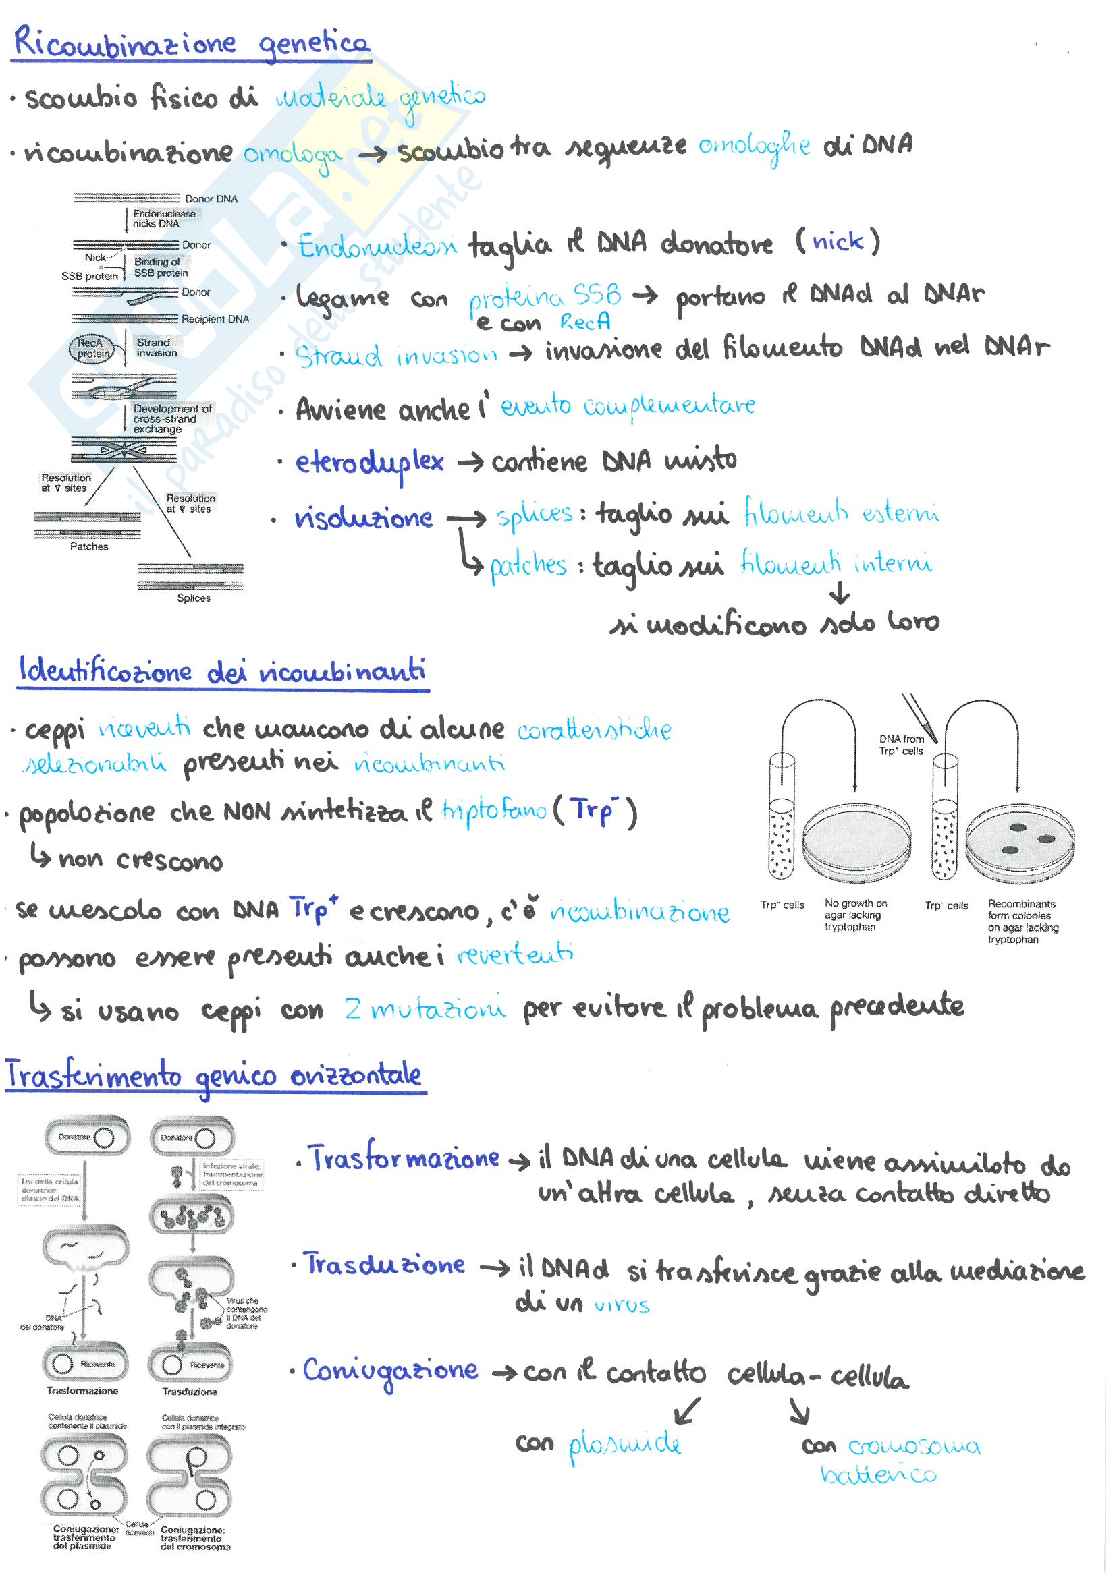 Ricombinazione genetica
· scambio fisico di materiale genetico
· ricombinazione omologa → scambio tra sequenze omologhe di DNA
Donor DNA
Endonuclease
nicks DNA
Donor
Nick
Binding of
SSB protein
SSB protein
Donor
Recipient DNA
RecA
protein
Strand
invasion
Development of
cross-strand
exchange
Resolution
at sites
Resolution
at sites
Patches
Splices
· Endonucleasi taglia il DNA donatore (nick)
· legame con proteina SSB → portano il DNAd al DNAr
e con RecA
· Strand invasion → invasione del filamento DNAd nel DNAr
· Avviene anche l'evento complementare
· eteroduplex → contiene DNA misto
· risoluzione → splices: taglio sui filamenti esterni
↳ patches: taglio sui filamenti interni
↓
si modificano solo loro
Identificazione dei ricombinanti
· ceppi riceventi che mancono di alcune caratteristiche
selezionabili presenti nei ricombinanti
· popolazione che NON sintetizza il triptofano (Trp⁻)
↳ non crescono
se mescolo con DNA Trp⁺ e crescono, c'è ricombinazione
· possono essere presenti anche i revertenti
↳ si usano ceppi con 2 mutazioni per evitare il problema precedente
DNA from
Trp⁺ cells
Trp⁻ cells
No growth on
agar lacking
tryptophan
Trp⁻ cells
Recombinants
form colonies
on agar lacking
tryptophan
Trasferimento genico orizzontale
Donatore
Donatore
Lisi della cellula
donatrice
rilascio del DNA
Infezione virale,
frammentazione
del cromosoma
DNA
del donatore
Virus che
contengono
il DNA del
donatore
Ricevente
Ricevente
Trasformazione
Trasduzione
Cellula donatrice
contenente il plasmide
Cellula donatrice
con il plasmide integrato
Cellule
riceventi
Coniugazione:
trasferimento
del plasmide
Coniugazione:
trasferimento
del cromosoma
· Trasformazione → il DNA di una cellula viene assimilato da
un'altra cellula, senza contatto diretto
· Trasduzione → il DNAd si trasferisce grazie alla mediazione
di un virus
· Coniugazione → con il contatto cellula-cellula
con plasmide
con cromosoma
batterico
il paradiso dello studente